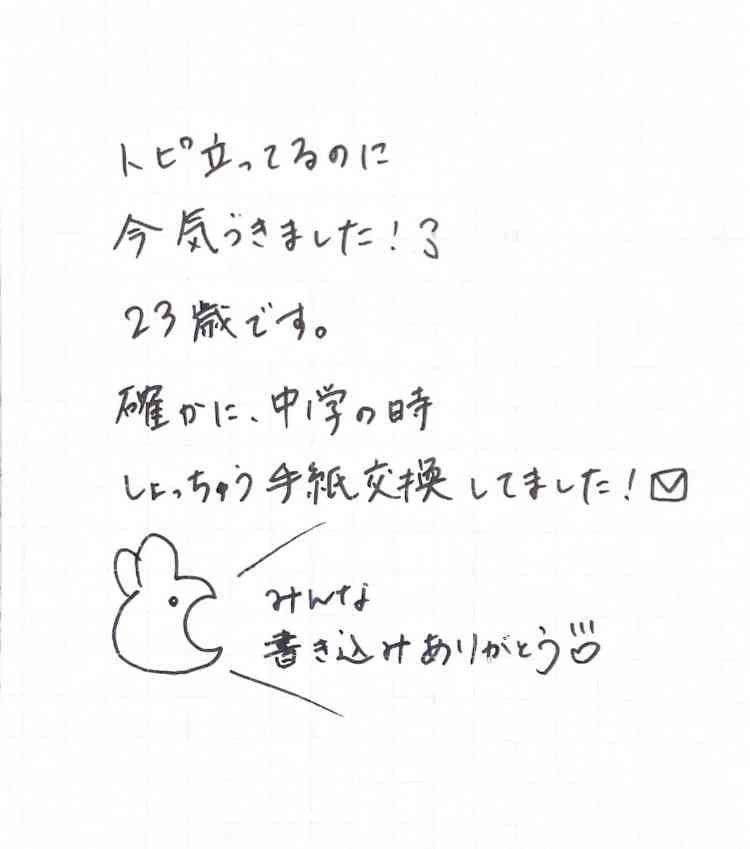 トピ立ってるのに
今気づきました!
23歳です。
確かに、中学の時
しょっちゅう手紙交換してました!
みんな
書き込みありがとう